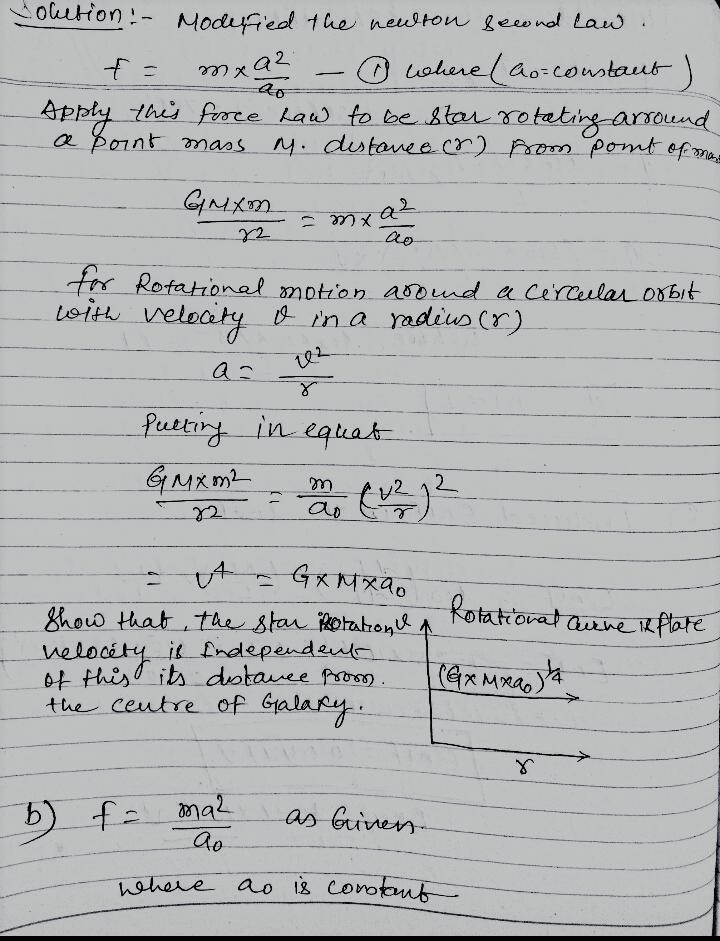 Solution :- Modified the newton second Law .
f = m x a2/a0 — ① where ( a0 = constant )
Apply this force Law to be star rotating arround
a point mass M. distance (r) from point of mass
GMxm/r2 = m x a2/a0
for Rotational motion around a circular orbit
with velocity v in a radius (r)
a = v2/r
putting in equat
GMxm2/r2 = m/a0 (v2/r)2
= v4 = GxMxa0
Show that , the star Rotational
velocity is Independent
of this its distance from .
the centre of Galaxy .
Rotational curve is flate
(GxMxa0)1/4
r
b) f = ma2/a0 as Given
where a0 is constant